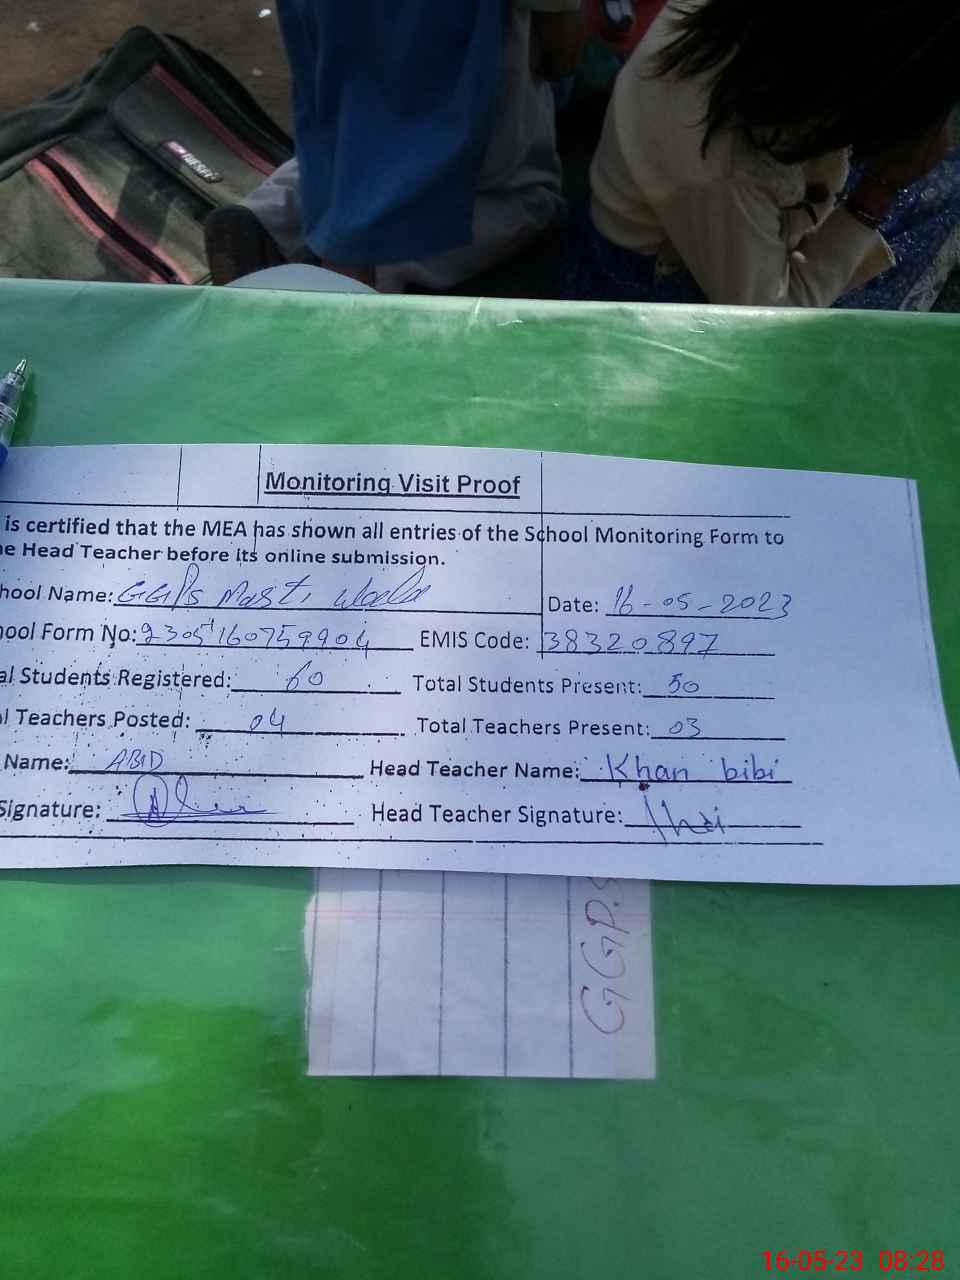 Monitoring Visit Proof
is certified that the MEA has shown all entries of the School Monitoring Form to
e Head Teacher before its online submission.
hool Name: GGPS Masti Date: 16-05-2023
ool Form No: 2305160759904 EMIS Code: 38320897
al Students Registered: 60 Total Students Present: 50
l Teachers Posted: 04 Total Teachers Present: 03
Name: ABID Head Teacher Name: Khan bibi
Signature: Head Teacher Signature:
GGP.S
16-05-23 08:28